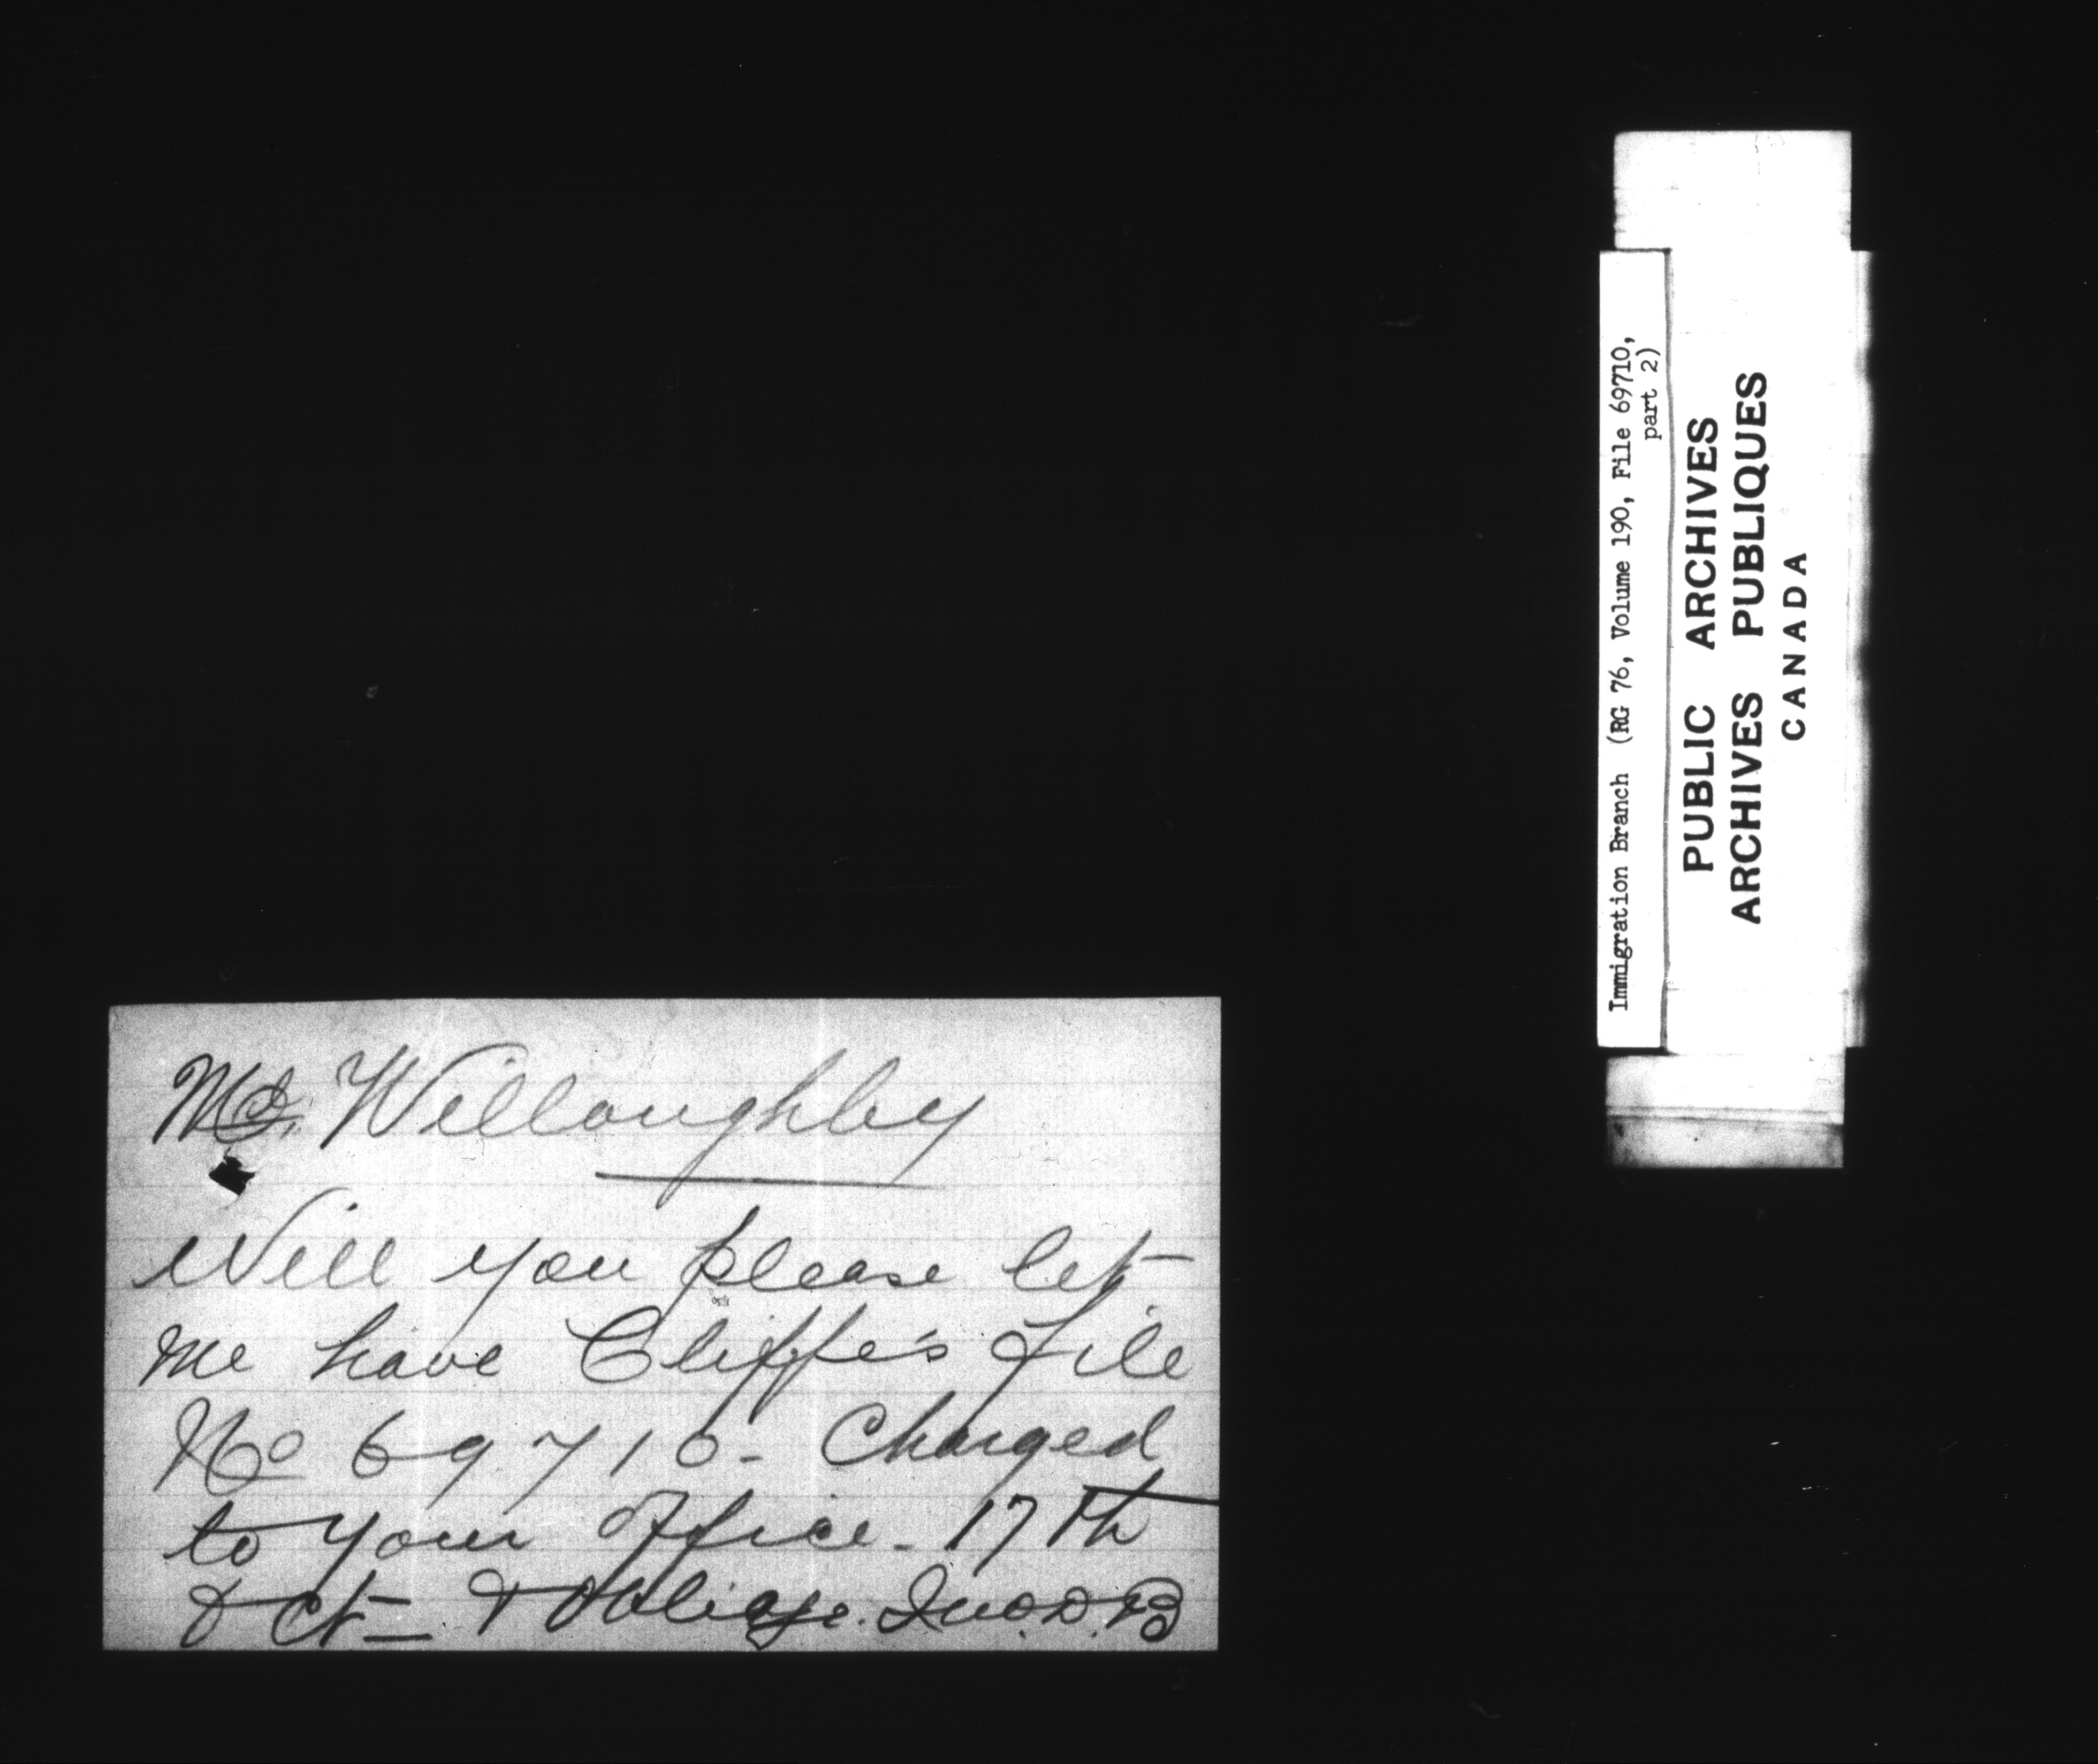 Mr. Willoughby
Will you please let
me have Cliffe's file
No 69710- Charged
to your office - 17th
Oct - & oblige. Jno. D. B
Immigration Branch (RG 76, Volume 190, File 69710,
part 2)
PUBLIC ARCHIVES
ARCHIVES PUBLIQUES
CANADA